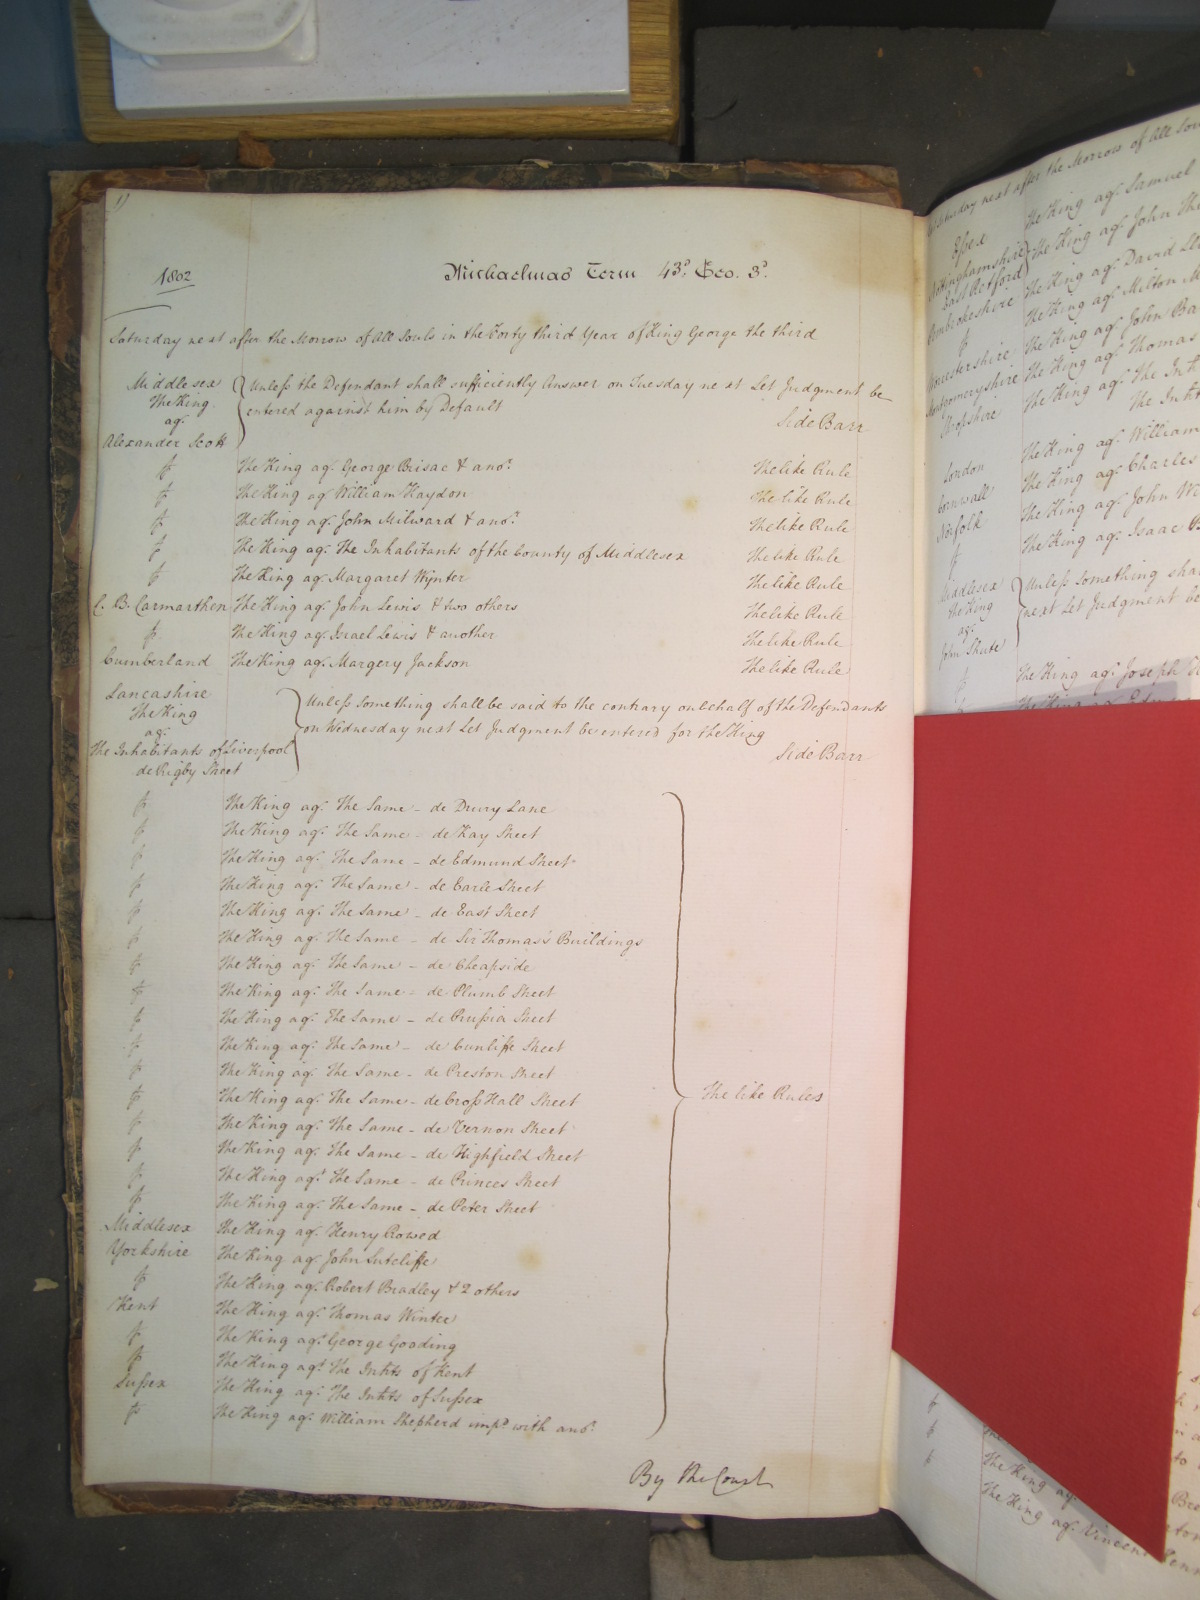 1)
1802
Michaelmas Term 43.d Geo. 3.d
Saturday next after the Morrow of All Souls in the Forty third Year of King George the third
Middlesex
The King
ag.t
Alexander Scott
Unless the Defendant shall sufficiently Answer on Tuesday next Let Judgment be
entered against him by Default
Side Barr
ſs The King ag.t George Brisac & ano.r The like Rule
ſs The King ag.t William Haydon The like Rule
ſs The King ag.t John Milward & ano.r The like Rule
ſs The King ag.t The Inhabitants of the County of Middlesex The like Rule
ſs The King ag.t Margaret Wynter The like Rule
C. B. Carmarthen The King ag.t John Lewis & two others The like Rule
ſs The King ag.t Israel Lewis & another The like Rule
Cumberland The King ag.t Margery Jackson The like Rule
Lancashire
The King
ag.t
The Inhabitants of Liverpool
de Rigby Street
Unless something shall be said to the contrary on behalf of the Defendants
on Wednesday next Let Judgment be entered for the King
Side Barr
ſs The King ag.t The Same - de Drury Lane
ſs The King ag.t The Same - de Kay Street
ſs The King ag.t The Same - de Edmund Street
ſs The King ag.t The Same - de Earle Street
ſs The King ag.t The Same - de East Street
ſs The King ag.t The Same - de Sir Thomas's Buildings
ſs The King ag.t The Same - de Cheapside
ſs The King ag.t The Same - de Plumb Street
ſs The King ag.t The Same - de Prussia Street
ſs The King ag.t The Same - de Cunliffe Street
ſs The King ag.t The Same - de Preston Street
ſs The King ag.t The Same - de Cross Hall Street The like Rules
ſs The King ag.t The Same - de Vernon Street
ſs The King ag.t The Same - de Highfield Street
ſs The King ag.t The Same - de Princes Street
ſs The King ag.t The Same - de Peter Street
Middlesex The King ag.t Henry Rowed
Yorkshire The King ag.t John Sutcliffe
ſs The King ag.t Robert Bradley & 2 others
Kent The King ag.t Thomas Winter
ſs The King ag.t George Gooding
ſs The King ag.t The Inh'ts of Kent
Sussex The King ag.t The Inh'ts of Sussex
ſs The King ag.t William Shepherd imp.d with ano.r
By the Court
Saturday next after the Morrow of All
Essex The King ag.t Samuel
Nottinghamshire
East Retford The King ag.t John
Pembrokeshire The King ag.t David
ſs The King ag.t Milton
Worcestershire The King ag.t John
Montgomeryshire The King ag.t Thomas
Shropshire The King ag.t The
The
London The King ag.t William
Cornwall The King ag.t Charles
Norfolk The King ag.t John
ſs The King ag.t Isaac
Middlesex
The King
ag.t
John Shute
Unless something
next Let Judgment be
ſs The King ag.t Joseph
ſs The King ag.t
ſs The King ag.t Vincent